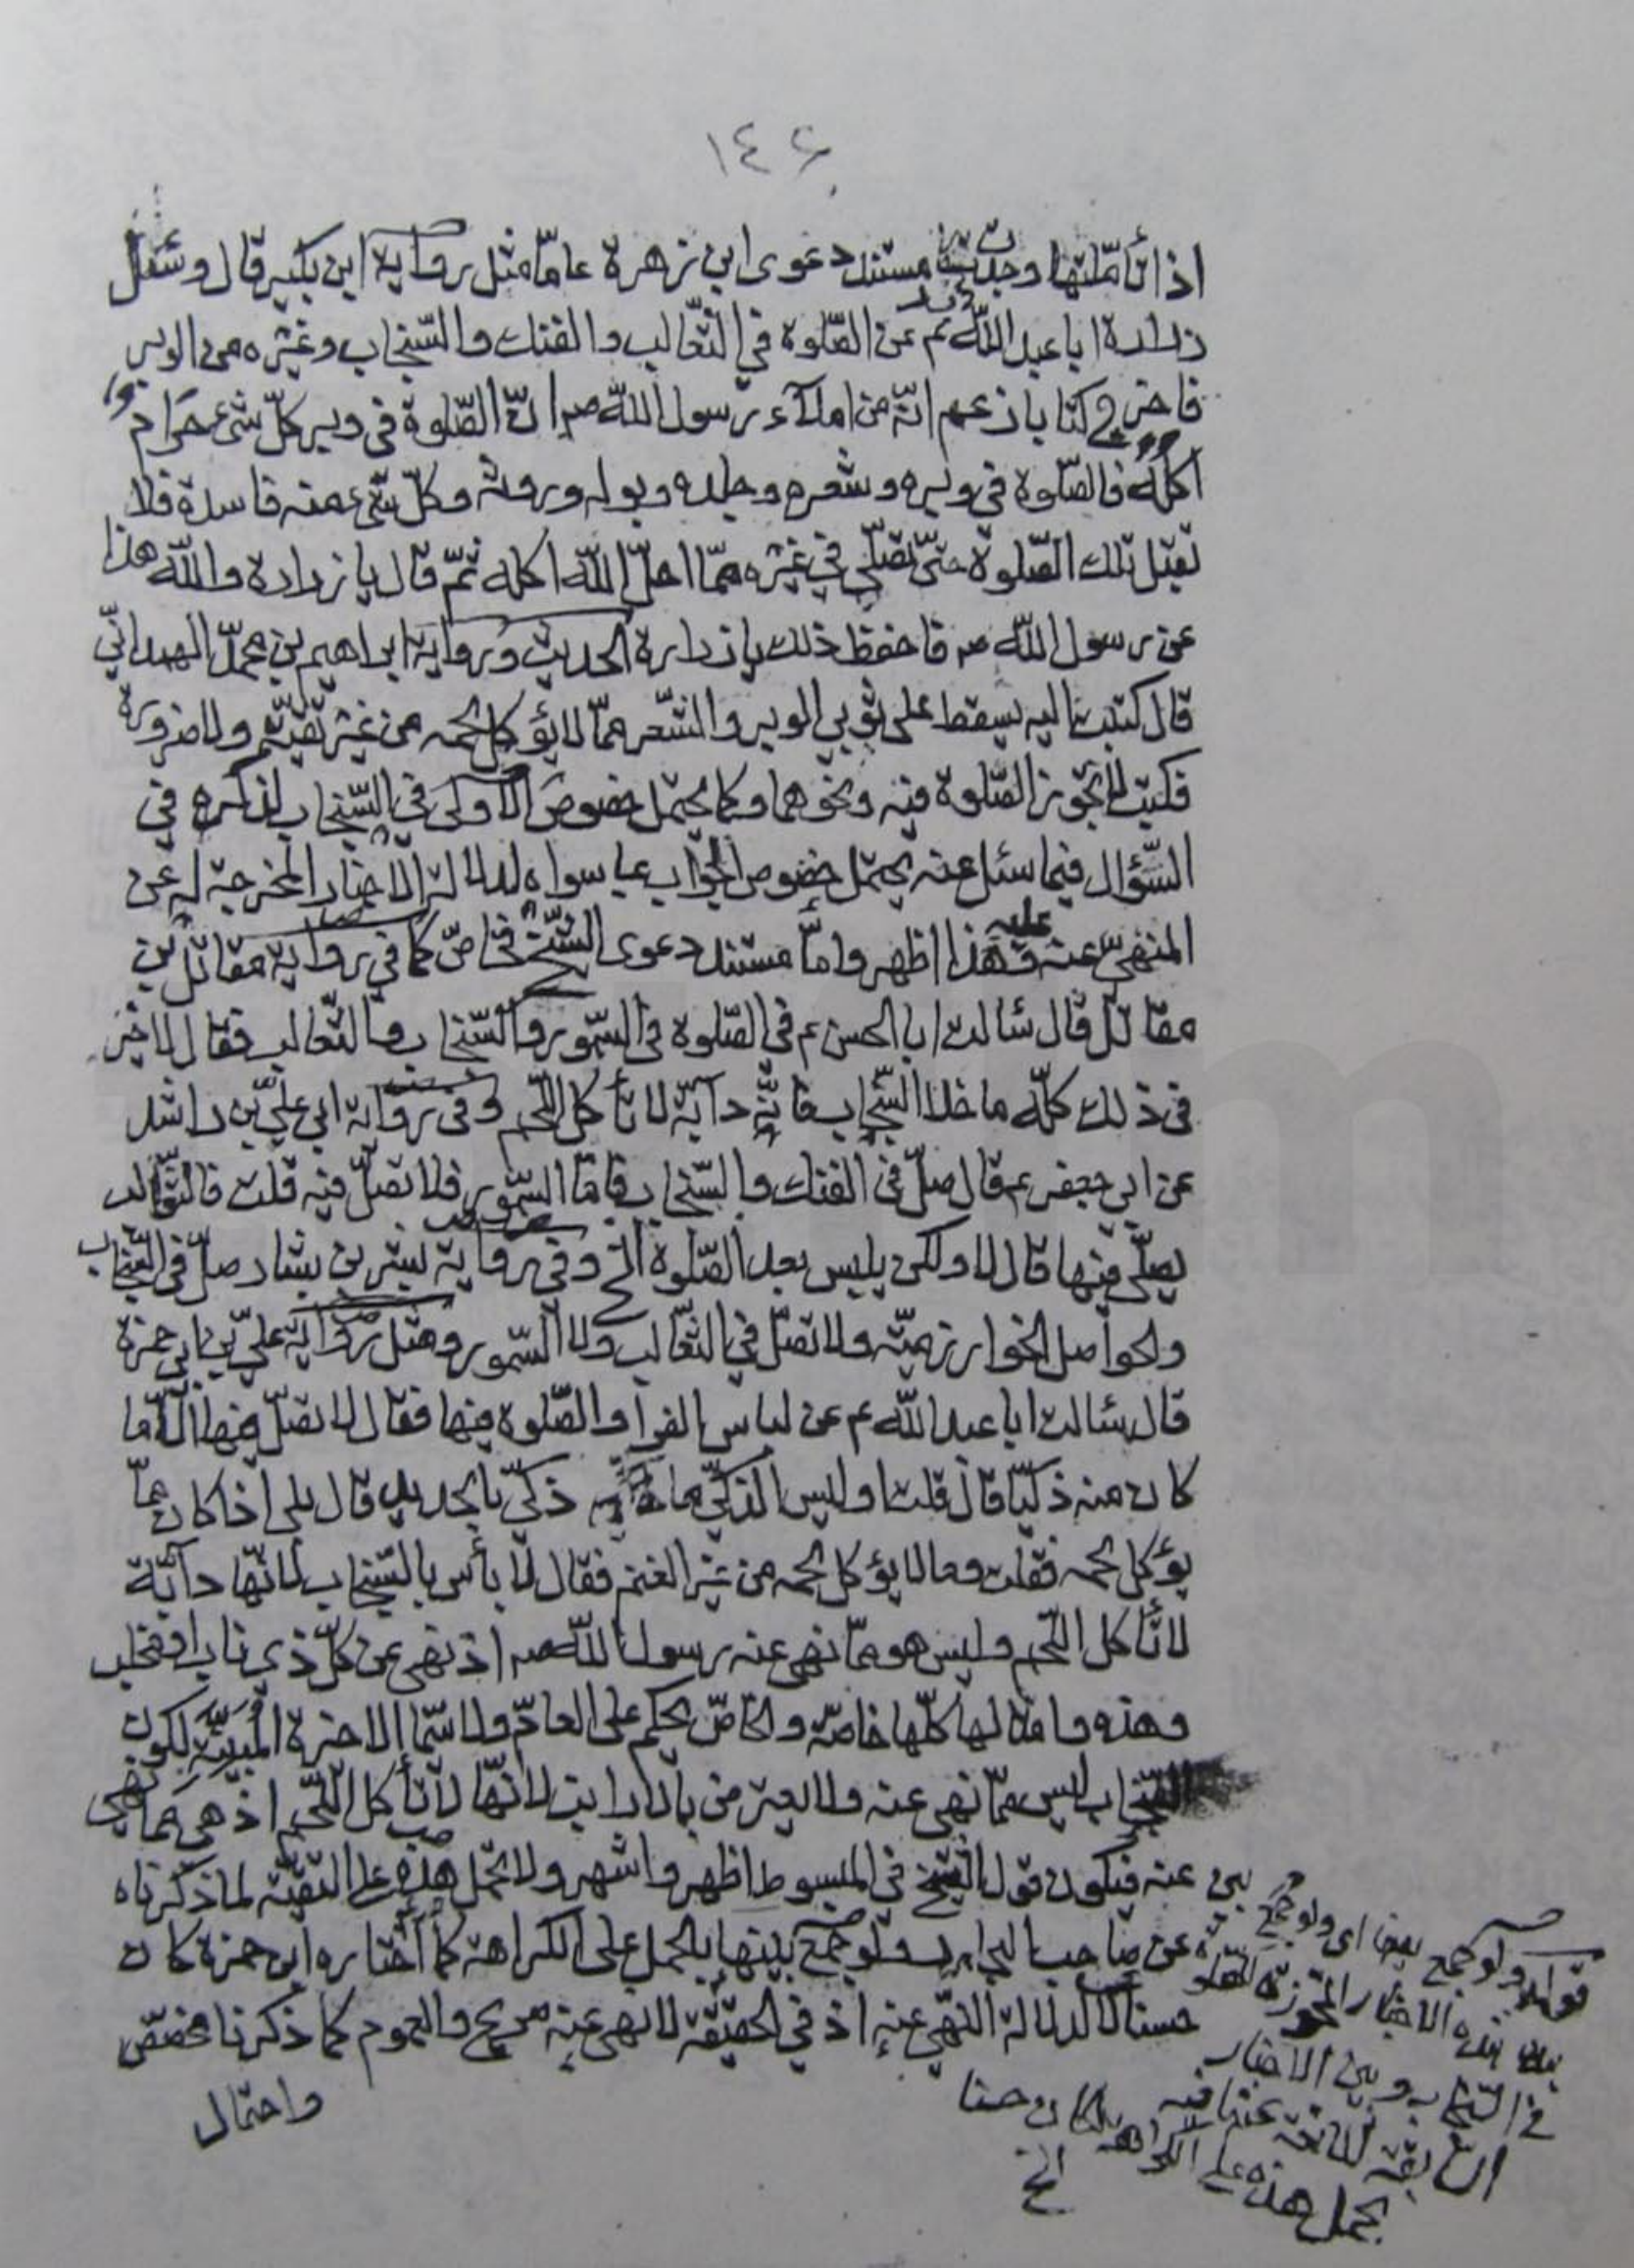 ١٤٦
اذا تأمّلتها وجدت مستند دعوى ابن زهرة عامّا مثل رواية ابن بكير قال وسئل
زرارة ابا عبد اللّه ع عن الصّلوة في الثّعالب والفنك والسّنجاب وغيره من الوبر
فاخرج كتابا زعم انّه من املاء رسول اللّه ص انّ الصّلوة في وبر كلّ شئ حرام
اكله فالصّلوة في وبره وشعره وجلده وبوله وروثه وكلّ شئ منه فاسدة فلا
تقبل تلك الصّلوة حتّى تصلّي في غيره ممّا احلّ اللّه اكله ثمّ قال يا زرارة واللّه هذا
عن رسول اللّه ص فاحفظ ذلك يا زرارة الحديث ورواية ابراهيم بن محمّد الهمدانيّ
قال كتبت اليه يسقط على ثوبي الوبر والشّعر ممّا لا يؤكل لحمه من غير تقيّة ولا ضرورة
فكتب لا تجوز الصّلوة فيه ونحوهما وكما يحتمل خصوص الاولى في السّنجاب لذكره في
السّؤال فيما سئل عنه يحتمل خصوص الجواب بما سواه لدلالة الاخبار المخرجة له عن
المنهيّ عنه عليه وهذا اظهر وامّا مستند دعوى الشّيخ فخاصّ كما في رواية مقاتل بن
مقاتل قال سئالت ابا الحسن ع في الصّلوة في السّمور والسّنجاب والثّعالب فقال لا خير
في ذلك كلّه ما خلا السّنجاب فانّه دابّة لا تأكل اللّحم وفي رواية ابي عليّ بن راشد
عن ابي جعفر ع قال صلّ في الفنك والسّنجاب فامّا السّمور فلا تصلّ فيه قلت فالثّعالب
يصلّى فيها قال لا ولكن يلبس بعد الصّلوة الخ وفي رواية بشر بن بشار صلّ في السّنجاب
والحواصل الخوارزميّة ولا تصلّ في الثّعالب ولا السّمور ومثل رواية عليّ بن ابي حمزة
قال سئالت ابا عبد اللّه ع عن لباس الفرا والصّلوة فيها فقال لا تصلّ فيها الّا ما
كان منه ذكيّا قال قلت او ليس الذكيّ ما ذكّي بالحديد قال بلى اذا كان ممّا
يؤكل لحمه فقلت وما لا يؤكل لحمه من غير الغنم فقال لا بأس بالسّنجاب لانّها دابّة
لا تأكل اللّحم وليس هو ممّا نهى عنه رسول اللّه ص اذ نهى عن كلّ ذي ناب او مخلب
وهذه وامثالها كلّها خاصّة والخاصّ يحكم على العامّ ولا سيّما الاخيرة المبيّنة لكون
السّنجاب ليس ممّا نهى عنه ولا لانّها لا تأكل اللّحم اذ هي ممّا نهى
عنه فيكون قول الشّيخ في المبسوط اظهر واشهر ولا تحمل هذه على التقيّة لما ذكرناه
عن صاحب البحار ولو جمع بينها بالحمل على الكراهة كما اختاره ابن حمزة كان
حسنا لا لدلالة النّهي عنه اذ في الحقيقة لا نهي عنه صريح والعموم كما ذكرنا مخصّص
واحتمال
قوله ولو جمع بينها اي ولو جمع بين
بين هذه الاخبار المجوّزة للصلوة
في السّنجاب وبين الاخبار
السّابقة المانعة عنها فيه
بحمل هذه على الكراهة لكان حسنا
الخ